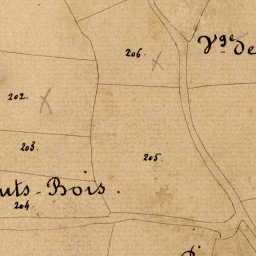 206.
Vge De
202.
203.
205.
uts-Bois.
204.